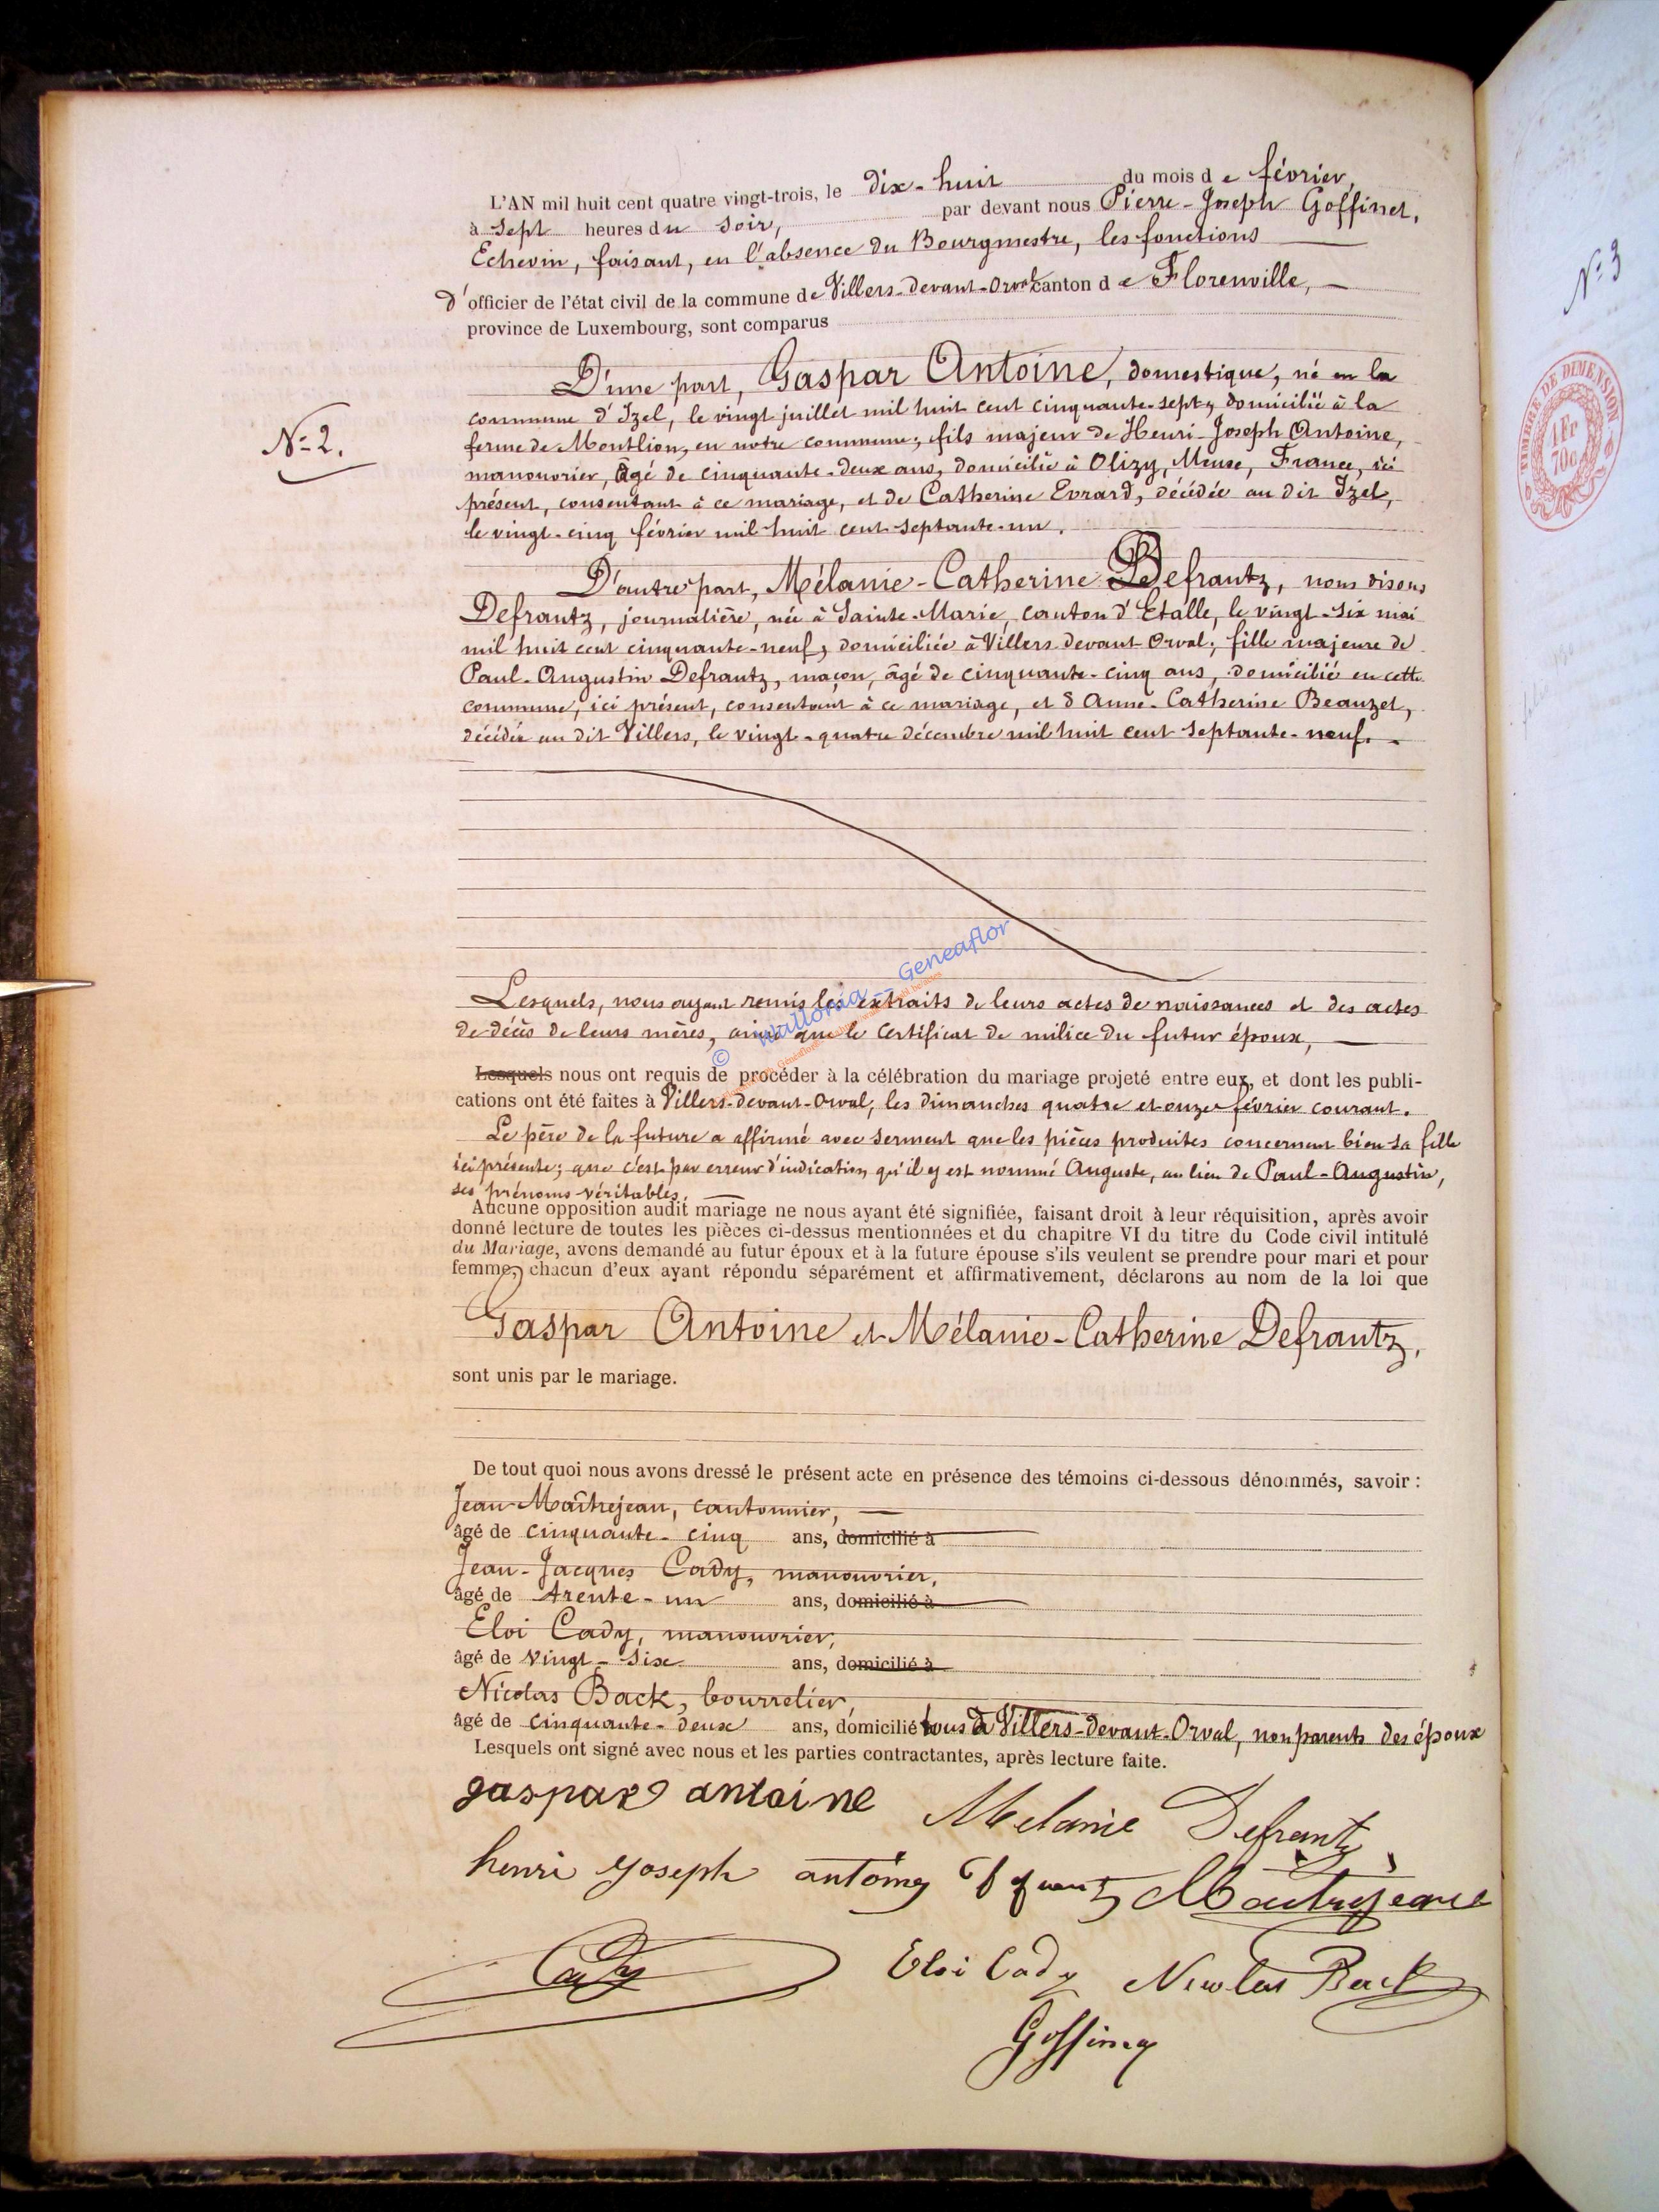 L'AN mil huit cent quatre vingt-trois, le dix-huit du mois de février,
à sept heures du soir, par devant nous Pierre-Joseph Goffinet,
Echevin, faisant, en l'absence du Bourgmestre, les fonctions
d'officier de l'état civil de la commune de Villers-devant-Orval canton de Florenville,
province de Luxembourg, sont comparus
D'une part, Gaspar Antoine, domestique, né en la
commune d'Izel, le vingt juillet mil huit cent cinquante-sept, domicilié à la
N° 2.
ferme de Montlion, en notre commune; fils majeur de Henri-Joseph Antoine,
manouvrier, âgé de cinquante-deux ans, domicilié à Olizy, Meuse, France, ici
présent, consentant à ce mariage, et de Catherine Evrard, décédée au dit Izel,
le vingt-cinq février mil huit cent septante-un.
D'autre part, Mélanie-Catherine Defrantz, nous disons
Defrantz, journalière, née à Sainte-Marie, canton d'Etalle, le vingt-six mai
mil huit cent cinquante-neuf, domiciliée à Villers-devant-Orval; fille majeure de
Paul-Augustin Defrantz, maçon, âgé de cinquante-cinq ans, domicilié en cette
commune, ici présent, consentant à ce mariage, et d'Anne-Catherine Beauzet,
décédée au dit Villers, le vingt-quatre décembre mil huit cent septante-neuf.
Lesquels, nous ayant remis les extraits de leurs actes de naissances et des actes
de décès de leurs mères, ainsi que le certificat de milice du futur époux,
© Walloria -- Geneaflor
Lesquels nous ont requis de procéder à la célébration du mariage projeté entre eux, et dont les publi-
cations ont été faites à Villers-devant-Orval, les dimanches quatre et onze février courant.
Le père de la future a affirmé avec serment que les pièces produites concernent bien sa fille
ici présente; que c'est par erreur d'indication qu'il y est nommé Auguste, au lieu de Paul-Augustin,
ses prénoms véritables.
Aucune opposition audit mariage ne nous ayant été signifiée, faisant droit à leur réquisition, après avoir
donné lecture de toutes les pièces ci-dessus mentionnées et du chapitre VI du titre du Code civil intitulé
du Mariage, avons demandé au futur époux et à la future épouse s'ils veulent se prendre pour mari et pour
femme, chacun d'eux ayant répondu séparément et affirmativement, déclarons au nom de la loi que
Gaspar Antoine et Mélanie-Catherine Defrantz,
sont unis par le mariage.
De tout quoi nous avons dressé le présent acte en présence des témoins ci-dessous dénommés, savoir :
Jean Maîtrejean, cantonnier,
âgé de cinquante-cinq ans, domicilié à
Jean-Jacques Cady, manouvrier,
âgé de trente-un ans, domicilié à
Eloi Cady, manouvrier,
âgé de vingt-six ans, domicilié à
Nicolas Back, bourrelier,
âgé de cinquante-deux ans, domicilié tous à Villers-devant-Orval, non parents des époux
Lesquels ont signé avec nous et les parties contractantes, après lecture faite.
gaspar antoine Melanie Defrantz
henri joseph antoine Maitrejean
Cady Eloi Cady Nicolas Back
Goffinet
N° 3
TIMBRE DE DIMENSION
1 Fr
70c